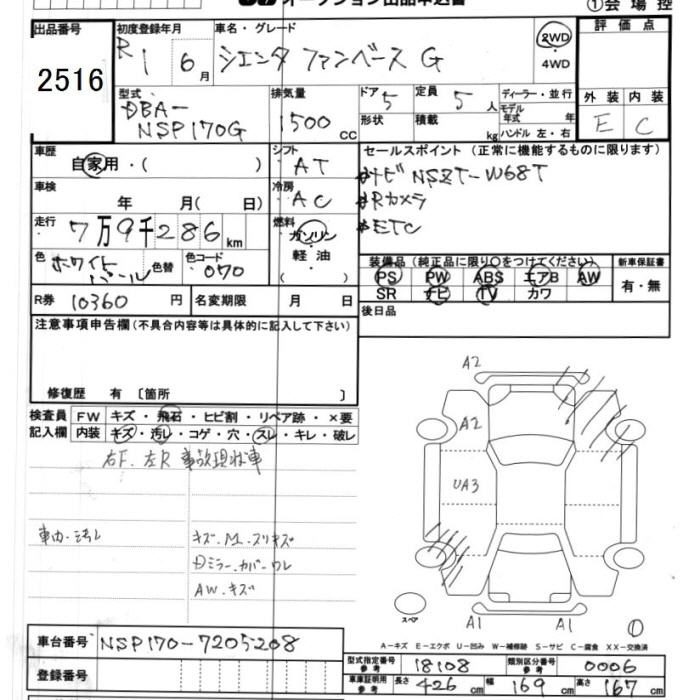 オークション出品申込書
①会場控
出品番号 初度登録年月 車名・グレード 評価点
2516 R1 6月 シエンタ ファンベース G 2WD・4WD
外装 内装
E C
型式 排気量 ドア 定員 ディーラー・並行
DBA-NSP170G 1500cc 5 5人 モデル年式 年
形状 積載 kg ハンドル 左・右
車歴 シフト セールスポイント (正常に機能するものに限ります)
自家用・( ) AT ナビ NSZT-W68T
車検 冷房 Rカメラ
年 月( 日) AC ETC
走行 7万9千286km 燃料 ガソリン・軽油・( )
色 ホワイトパール 色替 色コード 070
装備品 (純正品に限り○をつけてください) 新車保証書
PS PW ABS エアB AW 有・無
SR ナビ TV カワ
R券 10360円 名変期限 月 日 後日品
注意事項申告欄(不具合内容等は具体的に記入して下さい)
修復歴 有 〔箇所 〕
検査員記入欄 FW キズ・飛石・ヒビ割・リペア跡・×要
内装 キズ・汚レ・コゲ・穴・スレ・キレ・破レ
右F.左R 事故現状車
車内・汚レ キズ.M.スリキズ
Dミラー.カバーワレ
AW.キズ
A2
A2
UA3
スペア
A1 A1 ①
A－キズ E－エクボ U－凹み W－補修跡 S－サビ C－腐食 XX－交換済
車台番号 NSP170-7205208
型式指定番号 参考 18108 類別区分番号 参考 0006
登録番号 車庫証明用 参考 長さ 426cm 幅 169cm 高さ 167cm